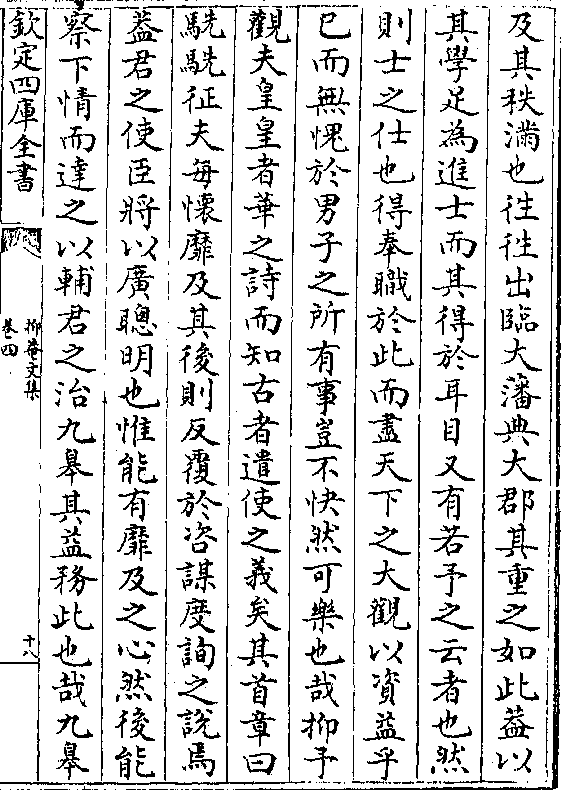 及其秩滿也徃徃出臨大藩典大郡其重之如此葢以
其學足為進士而其得於耳目又有若予之云者也然
則士之仕也得奉職於此而盡天下之大觀以資益乎
已而無愧於男子之所有事豈不快然可樂也哉抑予
觀夫皇皇者華之詩而知古者遣使之義矣其首章曰
駪駪征夫每懷靡及其後則反覆於咨謀度詢之說焉
葢君之使臣將以廣聰明也惟能有靡及之心然後能
察下情而達之以輔君之治九臯其益務此也哉九臯
欽定四庫全書
抑菴文集
卷四
十八